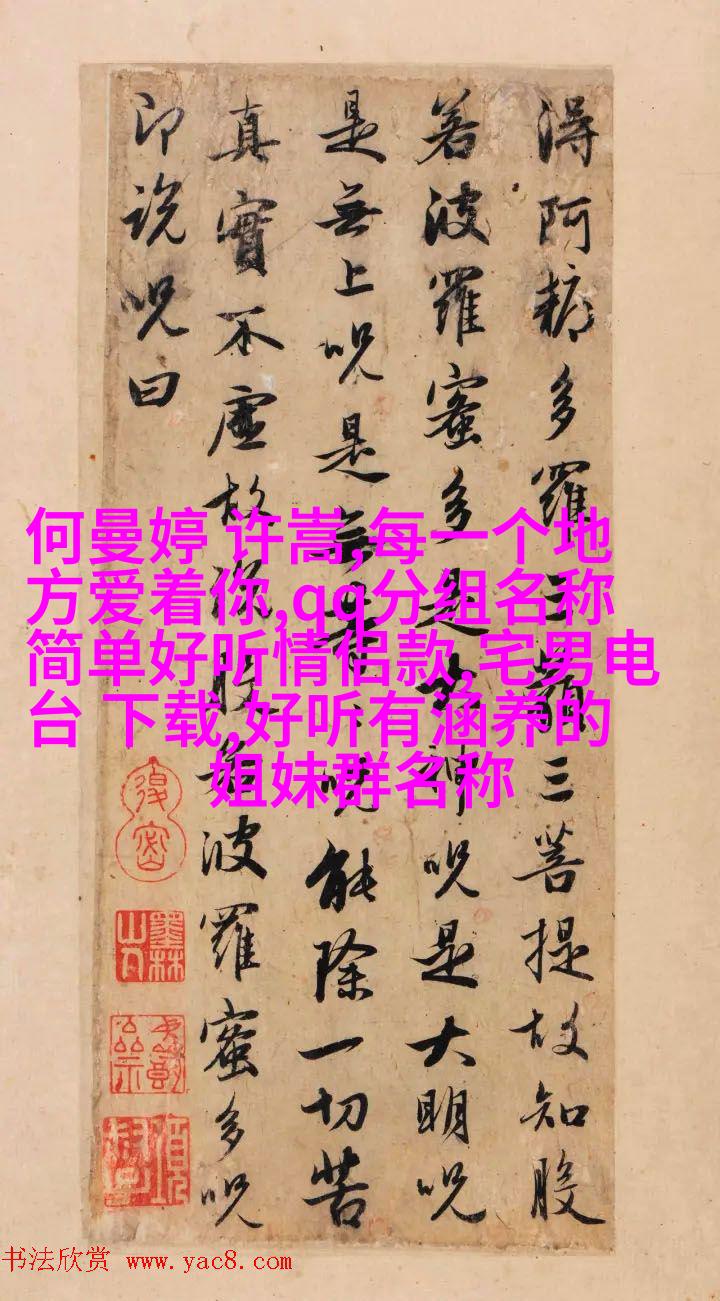 得阿耨多羅三藐三菩提故知般
若波羅蜜多是大神呪是大明呪
是無上呪是無等等呪能除一切苦
真實不虛故說般若波羅蜜多呪
即說呪曰
何曼婷 许嵩,每一个地
方爱着你,qq分组名称
简单好听情侣款,宅男电
台 下载,好听有涵养的
姐妹群名称
墨林山人
书法欣赏 www.yac8.com